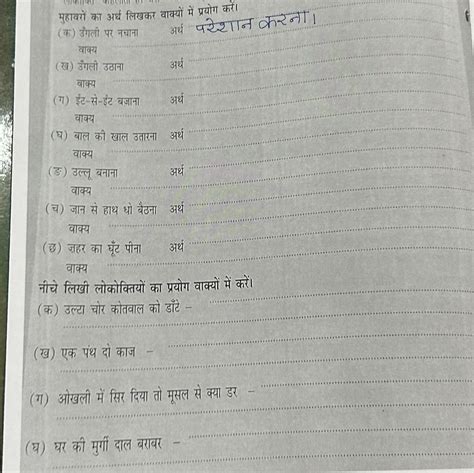 मुहावरों का अर्थ लिखकर वाक्यों में प्रयोग करें।
(क) उँगली पर नचाना अर्थ परेशान करना।
वाक्य
(ख) उँगली उठाना अर्थ
वाक्य
(ग) ईंट-से-ईंट बजाना अर्थ
वाक्य
(घ) बाल की खाल उतारना अर्थ
वाक्य
(ङ) उल्लू बनाना अर्थ
वाक्य
(च) जान से हाथ धो बैठना अर्थ
वाक्य
(छ) ज़हर का घूँट पीना अर्थ
वाक्य
नीचे लिखी लोकोक्तियों का प्रयोग वाक्यों में करें।
(क) उल्टा चोर कोतवाल को डाँटे –
(ख) एक पंथ दो काज –
(ग) ओखली में सिर दिया तो मूसल से क्या डर –
(घ) घर की मुर्गी दाल बराबर –